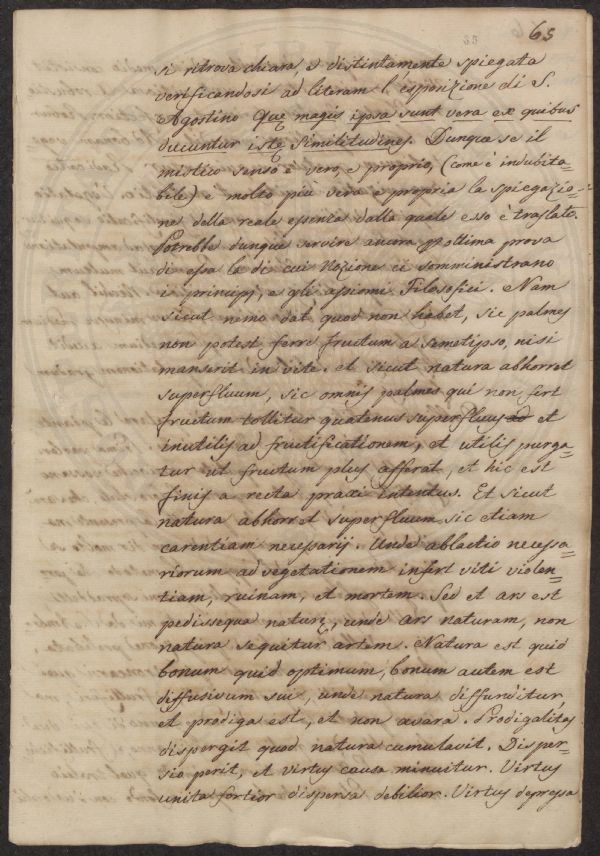 65
si ritrova chiara, e distintamente spiegata
verificandosi ad literam l'esposizione di S.
Agostino Quę magis ipsa sunt vera ex quibus
ducuntur istę similitudines. Dunque se il
mistico senso è vero, e proprio, (come è indubita=
bile) è molto più vera e propria la spiegazio=
ne della reale essenza dalla quale esso è traslato.
Potrebbe dunque servire ancora pottima prova
di essa la di cui Nozione ci somministrano
i principj, e gli assiomi Filosofici. Nam
sicut nemo dat quod non habet, sic palmes
non potest ferre fructum a semetipso, nisi
manserit in vite. et sicut natura abhorret
superfluum, sic omnis palmes qui non fert
fructum tollitur quatenus superfluus ad et
inutilis ad fructificationem, et utilis purga=
tur ut fructum plus afferat, et hic est
finis a recta praxi intentus. Et sicut
natura abhorret superfluum sic etiam
carentiam necessarij. Unde ablactio necessa=
riorum ad vegetationem infert viti violen=
tiam, ruinam, et mortem. Sed et ars est
pedissequa naturę, unde ars naturam, non
natura sequitur artem. Natura est quid
bonum quid optimum, bonum autem est
diffusivum sui, unde natura diffunditur,
et prodiga est, et non avara. Prodigalitas
dispergit quod natura cumulavit. Disper=
sio perit, et virtus causa minuitur. Virtus
unita fortior dispersa debilior. Virtus depressa